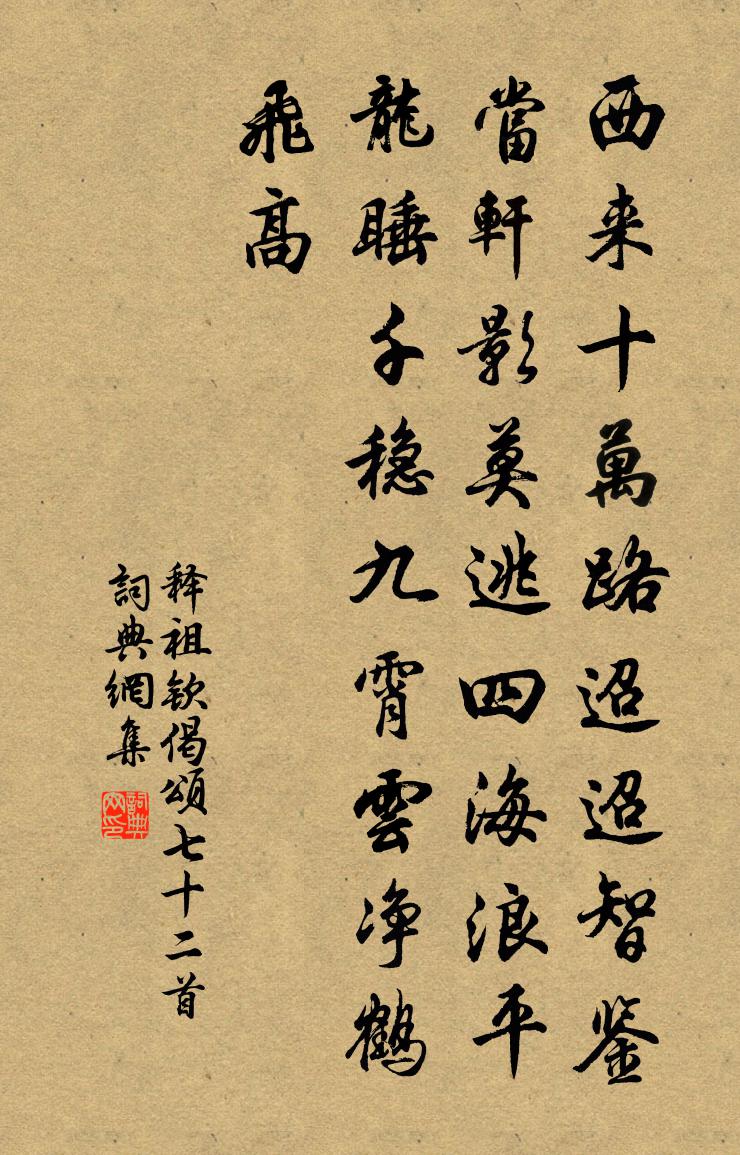 西来十萬路迢迢智鉴
當軒影莫逃四海浪平
龍睡千穏九霄雲净鶴
飛高
释祖欽偈頌七十二首
詞典網集
詞典网印